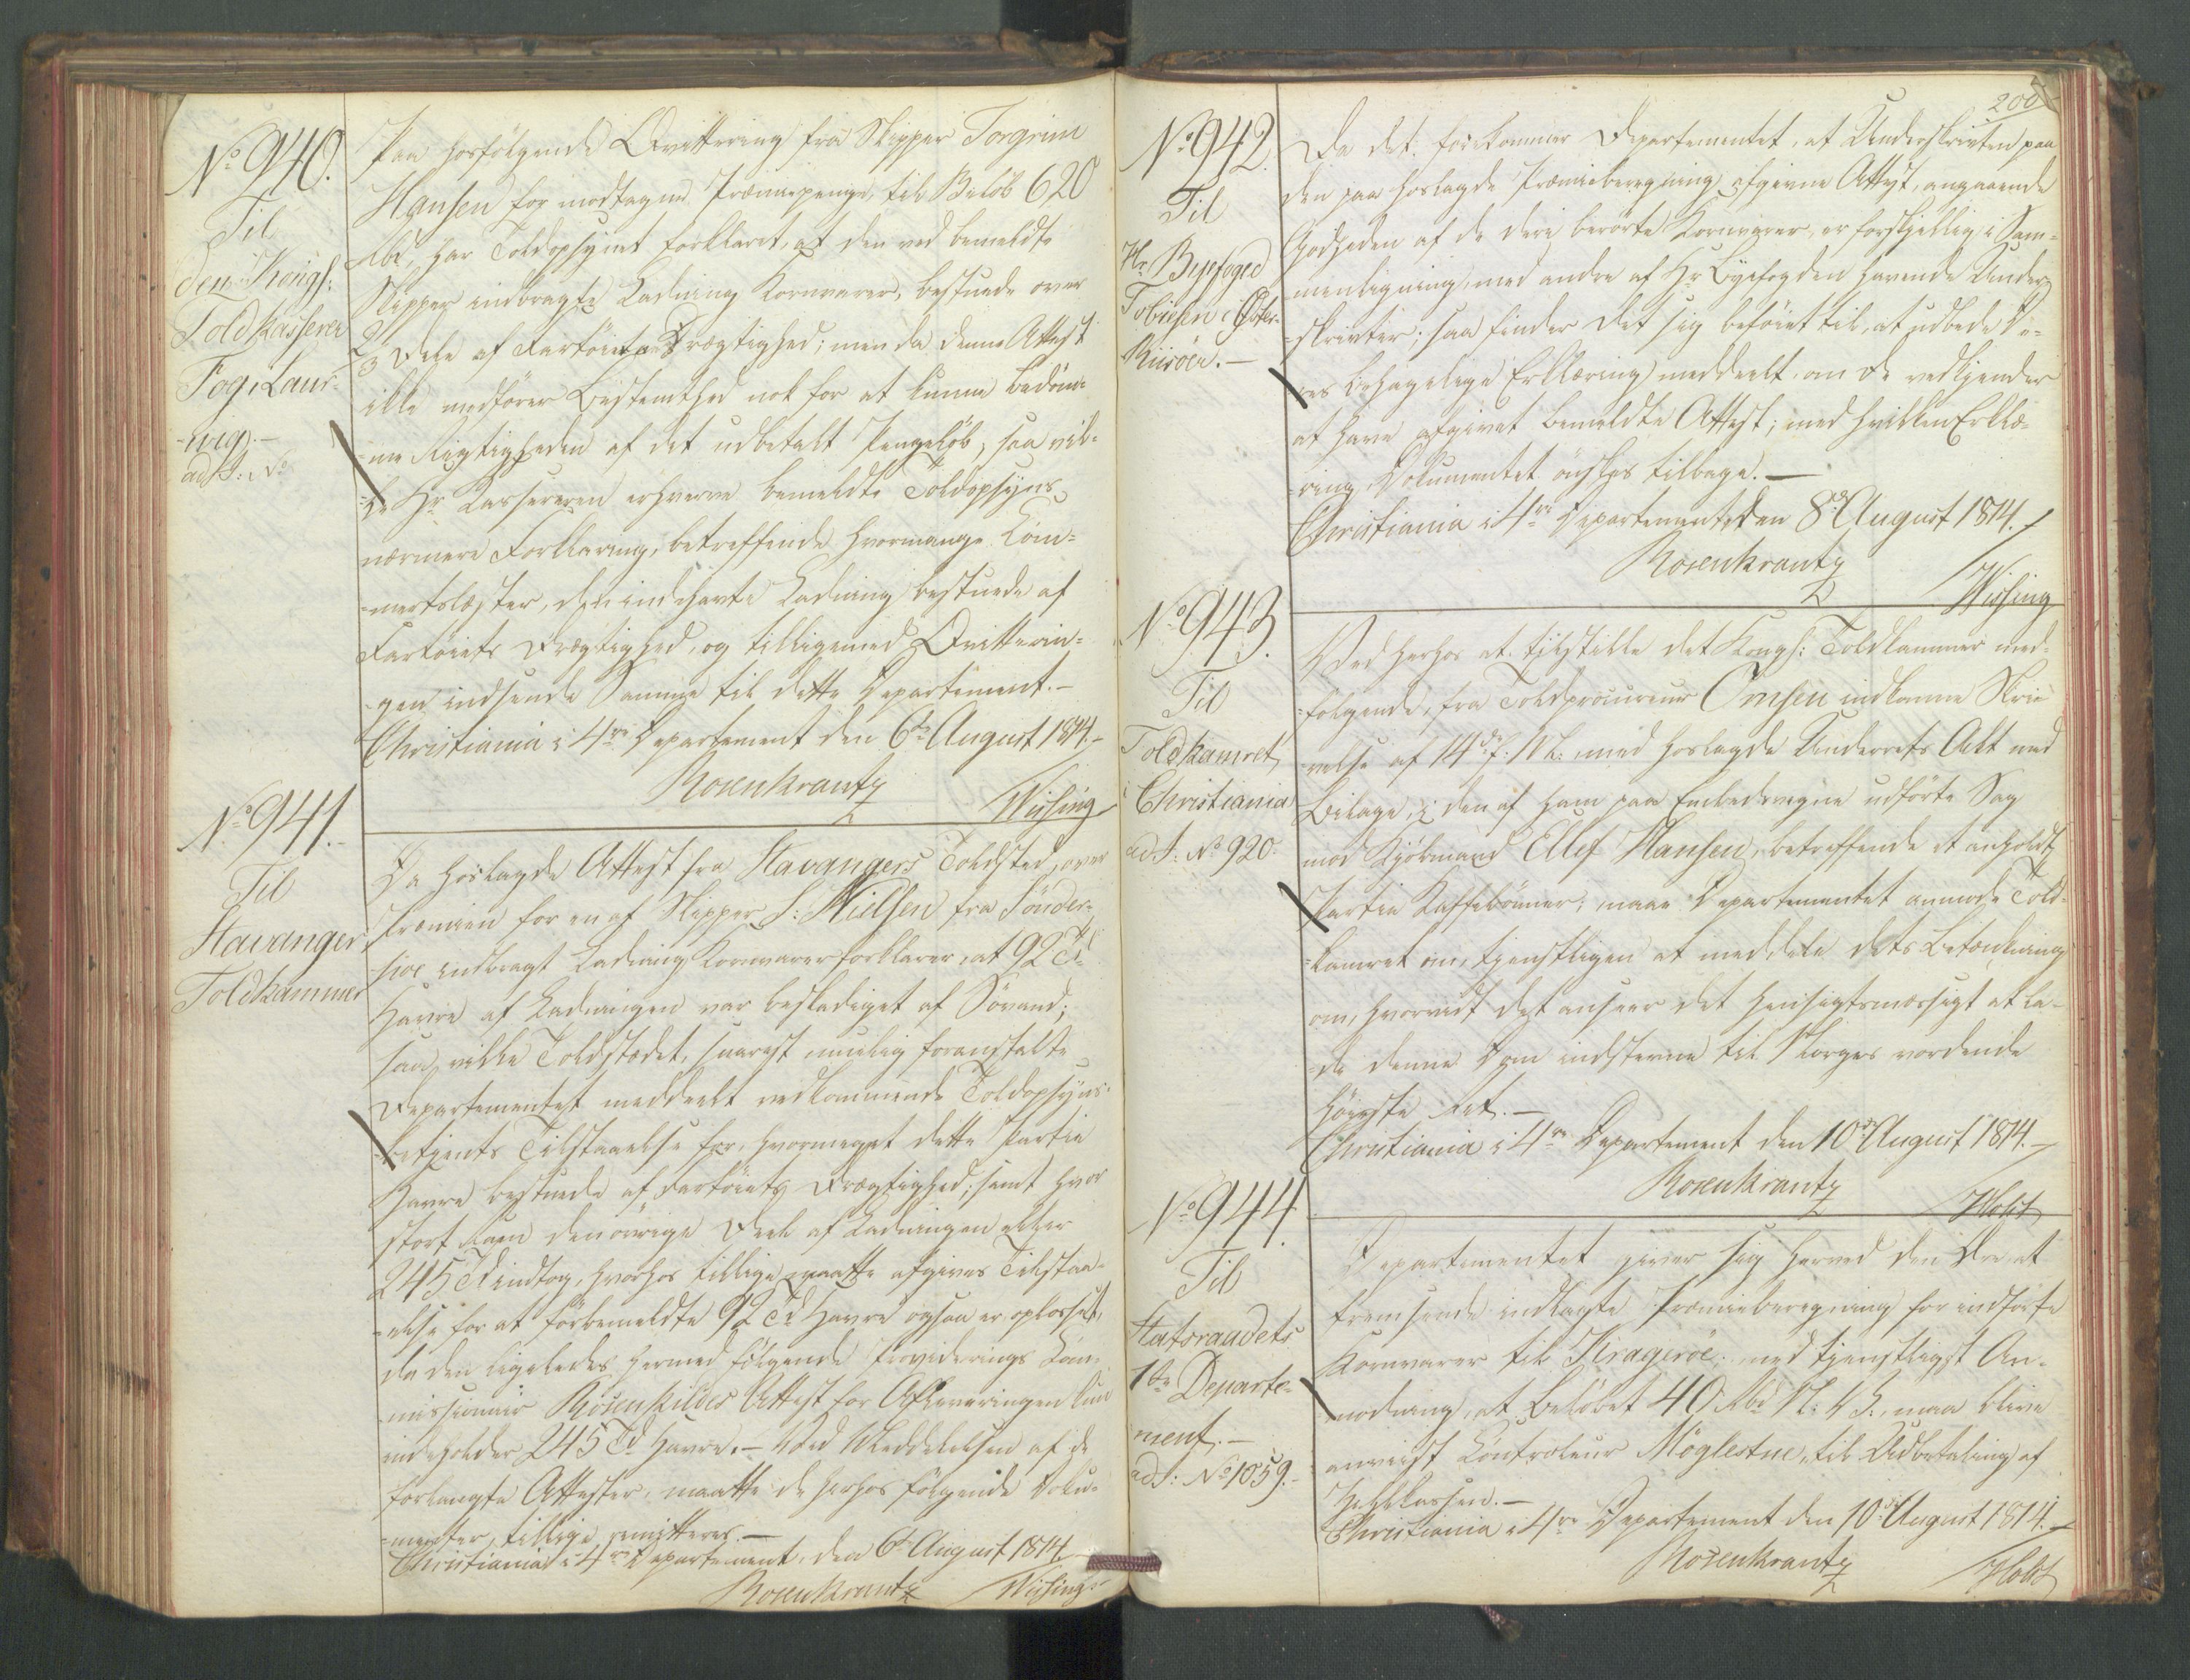 No 940.
Til
den Kongl:
Toldkasserer
Fog, Laur-
-wig.-
ad J: No
Paa hosfølgende Qvittering fra Skipper Torgrim
Hansen for modtagne Præmiepenge, til Beløb 620
rbd, har Toldopsynet forklaret, at den ved bemeldte
Skipper indbragte Ladning Kornvarer, bestuede over
2/3 Dele af Fartøiets Drægtighed; men da denne Attest
ikke medfører Bestemthed nok for at kunne bedøm-
-me Rigtigheden af det udbetalt Pengeløb, saa vil-
-de Hr Kassereren erhverve bemeldte Toldopsyns
nærmere Forklaring, betreffende hvormange Com-
-mertslæster, den indehavte Ladning bestuede af
Fartøiets Drægtighed, og tilligemed Qvitterin-
-gen indsende Samme til dette Departement.-
Christiania i 4re Departement den 6te August 1814.-
Rosenkrantz
Wissing
No 941.-
Til
Stavanger
Toldkammer
Da hoslagde Attest fra Stavangers Toldsted, over
Præmien for en af Skipper S: Nielsen fra Sønder-
-hoe indbragt Ladning Kornvarer forklarer, at 92 Td
Havre af Ladningen var beskadiget af Søvand;
saa vilde Toldstedet, snarest muelig foranstalte
Departementet meddeelt vedkommende Toldopsyns-
-betjents Tilstaaelse for, hvormeget dette Partie
Havre bestuede af Fartøiets Drægtighed, samt hvor
stort Rum den øvrige Deel af Ladningen eller
245 Td indtog, hvorhos tillige maatte afgives Tilstaa-
-else for at førbemeldte 92 Td Havre ogsaa er oplosset,
da den ligeledes hermed følgende Providerings Com-
-missionair Rosenkildes Attest for Afleveringen kun
indeholder 245 Td Havre.- Ved Meddelelsen af de
forlangte Attester, maatte de herhos følgende Doku-
-menter, tillige remitteres.-
Christiania i 4re Departement, den 6te August 1814.
Rosenkrantz
Wissing
200
No 942.
Til
Hr Byefoged
Tobiesen i Øster-
Riisöer.-
Da det forekommer Departementet, at Underskriften paa
den paa hoslagde Præmieberegning afgivne Attest, angaaende
Godheden af de deri berørte Kornvarer, er forskjellig i Sam-
-menligning med andre af Hr Byefogden havende Under-
-skrifter; saa finder det sig beføiet til, at udbede De-
-res behagelige Erklæring meddeelt, om De vedkjender
at have afgivet bemeldte Attest; med hvilken Erklæ-
-ring Dokumentet ønskes tilbage.-
Christiania i 4re Departement den 8de August 1814.
Rosenkrantz
Wissing
No 943.
Til
Toldkamret
i Christiania
ad J: No 920.
Ved herhos at tilstille det Kongl: Toldkammer med-
-følgende, fra Toldprocureur Omsen indkomne Skri-
-velse af 14de f. M: med hoslagde Underrets Akt med
Bilage, i den af ham paa Embedsvegne udførte Sag
mod Kjøbmand Ellef Hansen, betreffende et anholdt
Partie Kaffebønner; maae Departementet anmode Told-
-kamret om, tjenstligen at meddele dets Betænkning
om, hvorvidt det anseer det hensigtsmæssigt at la-
-de denne Dom indstevne til Norges vordende
Høieste Ret.-
Christiania i 4re Departement den 10de August 1814.-
Rosenkrantz
Holst
No 944.
Til
Statsraadets
1te Departe-
ment.-
ad J: No 1059.-
Departementet giver sig herved den Ære, at
fremsende indlagte Præmieberegning for indførte
Kornvarer til Krageröe; med tjenstligst An-
-modning, at Beløbet 40 Rbd N: V S:, maa blive
anviist Controleur Möglestue, til Udbetaling af
Christiania i 4re Departement den 10de August 1814.
Rosenkrantz
Holst